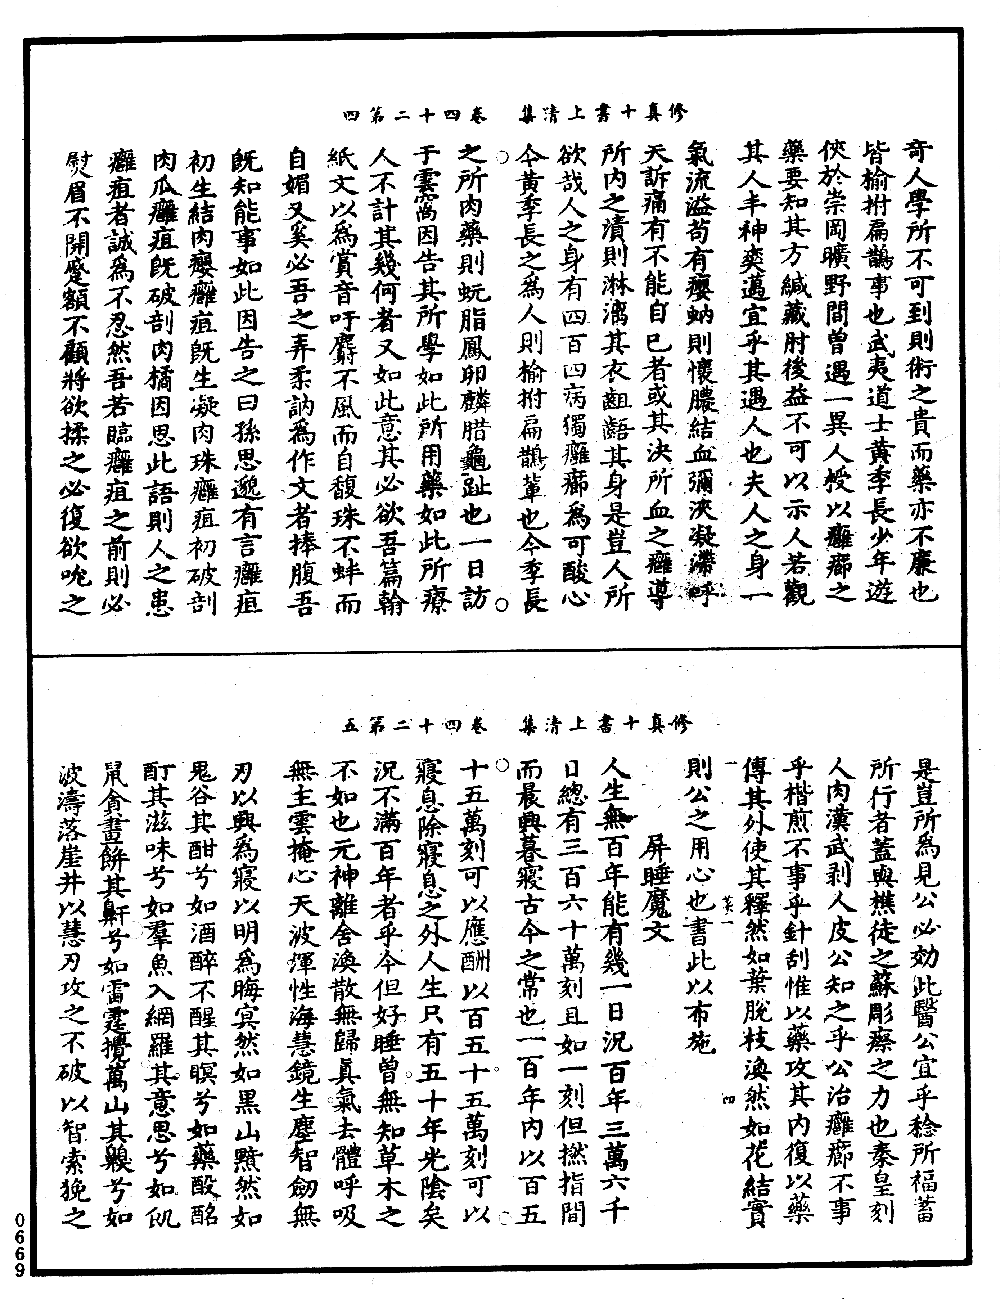 修真十書上清集　卷四十二第四
奇人學所不可到則術之貴而藥亦不廉也
皆榆拊扁鵲事也武夷道士黃季長少年遊
俠於崇岡曠野間曾遇一異人授以癰癤之
藥要知其方緘藏肘後益不可以示人若觀
其人丰神爽邁宜乎其遇人也夫人之身一
氣流溢苟有癭蚋則懷膿結血彌浹凝滯呼
天訴痛有不能自巳者或其決所血之癰導
所內之潰則淋漓其衣齟齬其身是豈人所
欲哉人之身有四百四病獨癰癤為可酸心
今黃季長之為人則榆拊扁鵲輩也今季長
之所肉藥則蚖脂鳳卵麟腊龜趾也一日訪
于雲窩因告其所學如此所用藥如此所療
人不計其幾何者又如此意其必欲吾篇翰
紙文以為賞音吁麝不風而自馥珠不蚌而
自媚又奚必吾之弄柔訥為作文者捧腹吾
既知能事如此因告之曰孫思邈有言癰疽
初生結肉癭癰疽既生凝肉珠癰疽初破剖
肉瓜癰疽既破剖肉橘因思此語則人之患
癰疽者誠為不忍然吾若臨癰疽之前則必
熨眉不開蹙額不顧將欲揉之必復欲吮之
修真十書上清集　卷四十二第五
是豈所為見公必効此醫公宜乎稔所福蓄
所行者蓋與樵徒之蘇彫瘵之力也秦皇刻
人肉漢武剥人皮公知之乎公治癰癤不事
乎楷煎不事乎針刮惟以藥攻其內復以藥
傳其外使其釋然如葉脫枝渙然如花結實
則公之用心也書此以布施
屏睡魔文
人生無百年能有幾一日況百年三萬六千
日總有三百六十萬刻且如一刻但撚指間
而晨興暮寢古今之常也一百年內以百五
十五萬刻可以應酬以百五十五萬刻可以
寢息除寢息之外人生只有五十年光陰矣
況不滿百年者乎今但好睡曾無知草木之
不如也元神離舍渙散無歸真氣去體呼吸
無主雲掩心天波渾性海慧鏡生塵智劒無
刃以興為寢以明為晦冥然如黑山黯然如
鬼谷其酣兮如酒醉不醒其瞑兮如藥酘酩
酊其滋味兮如羣魚入網羅其意思兮如飢
鼠貪畫餅其鼾兮如雷霆攪萬山其艘兮如
波濤落崖井以慧刃攻之不破以智索挽之
0669